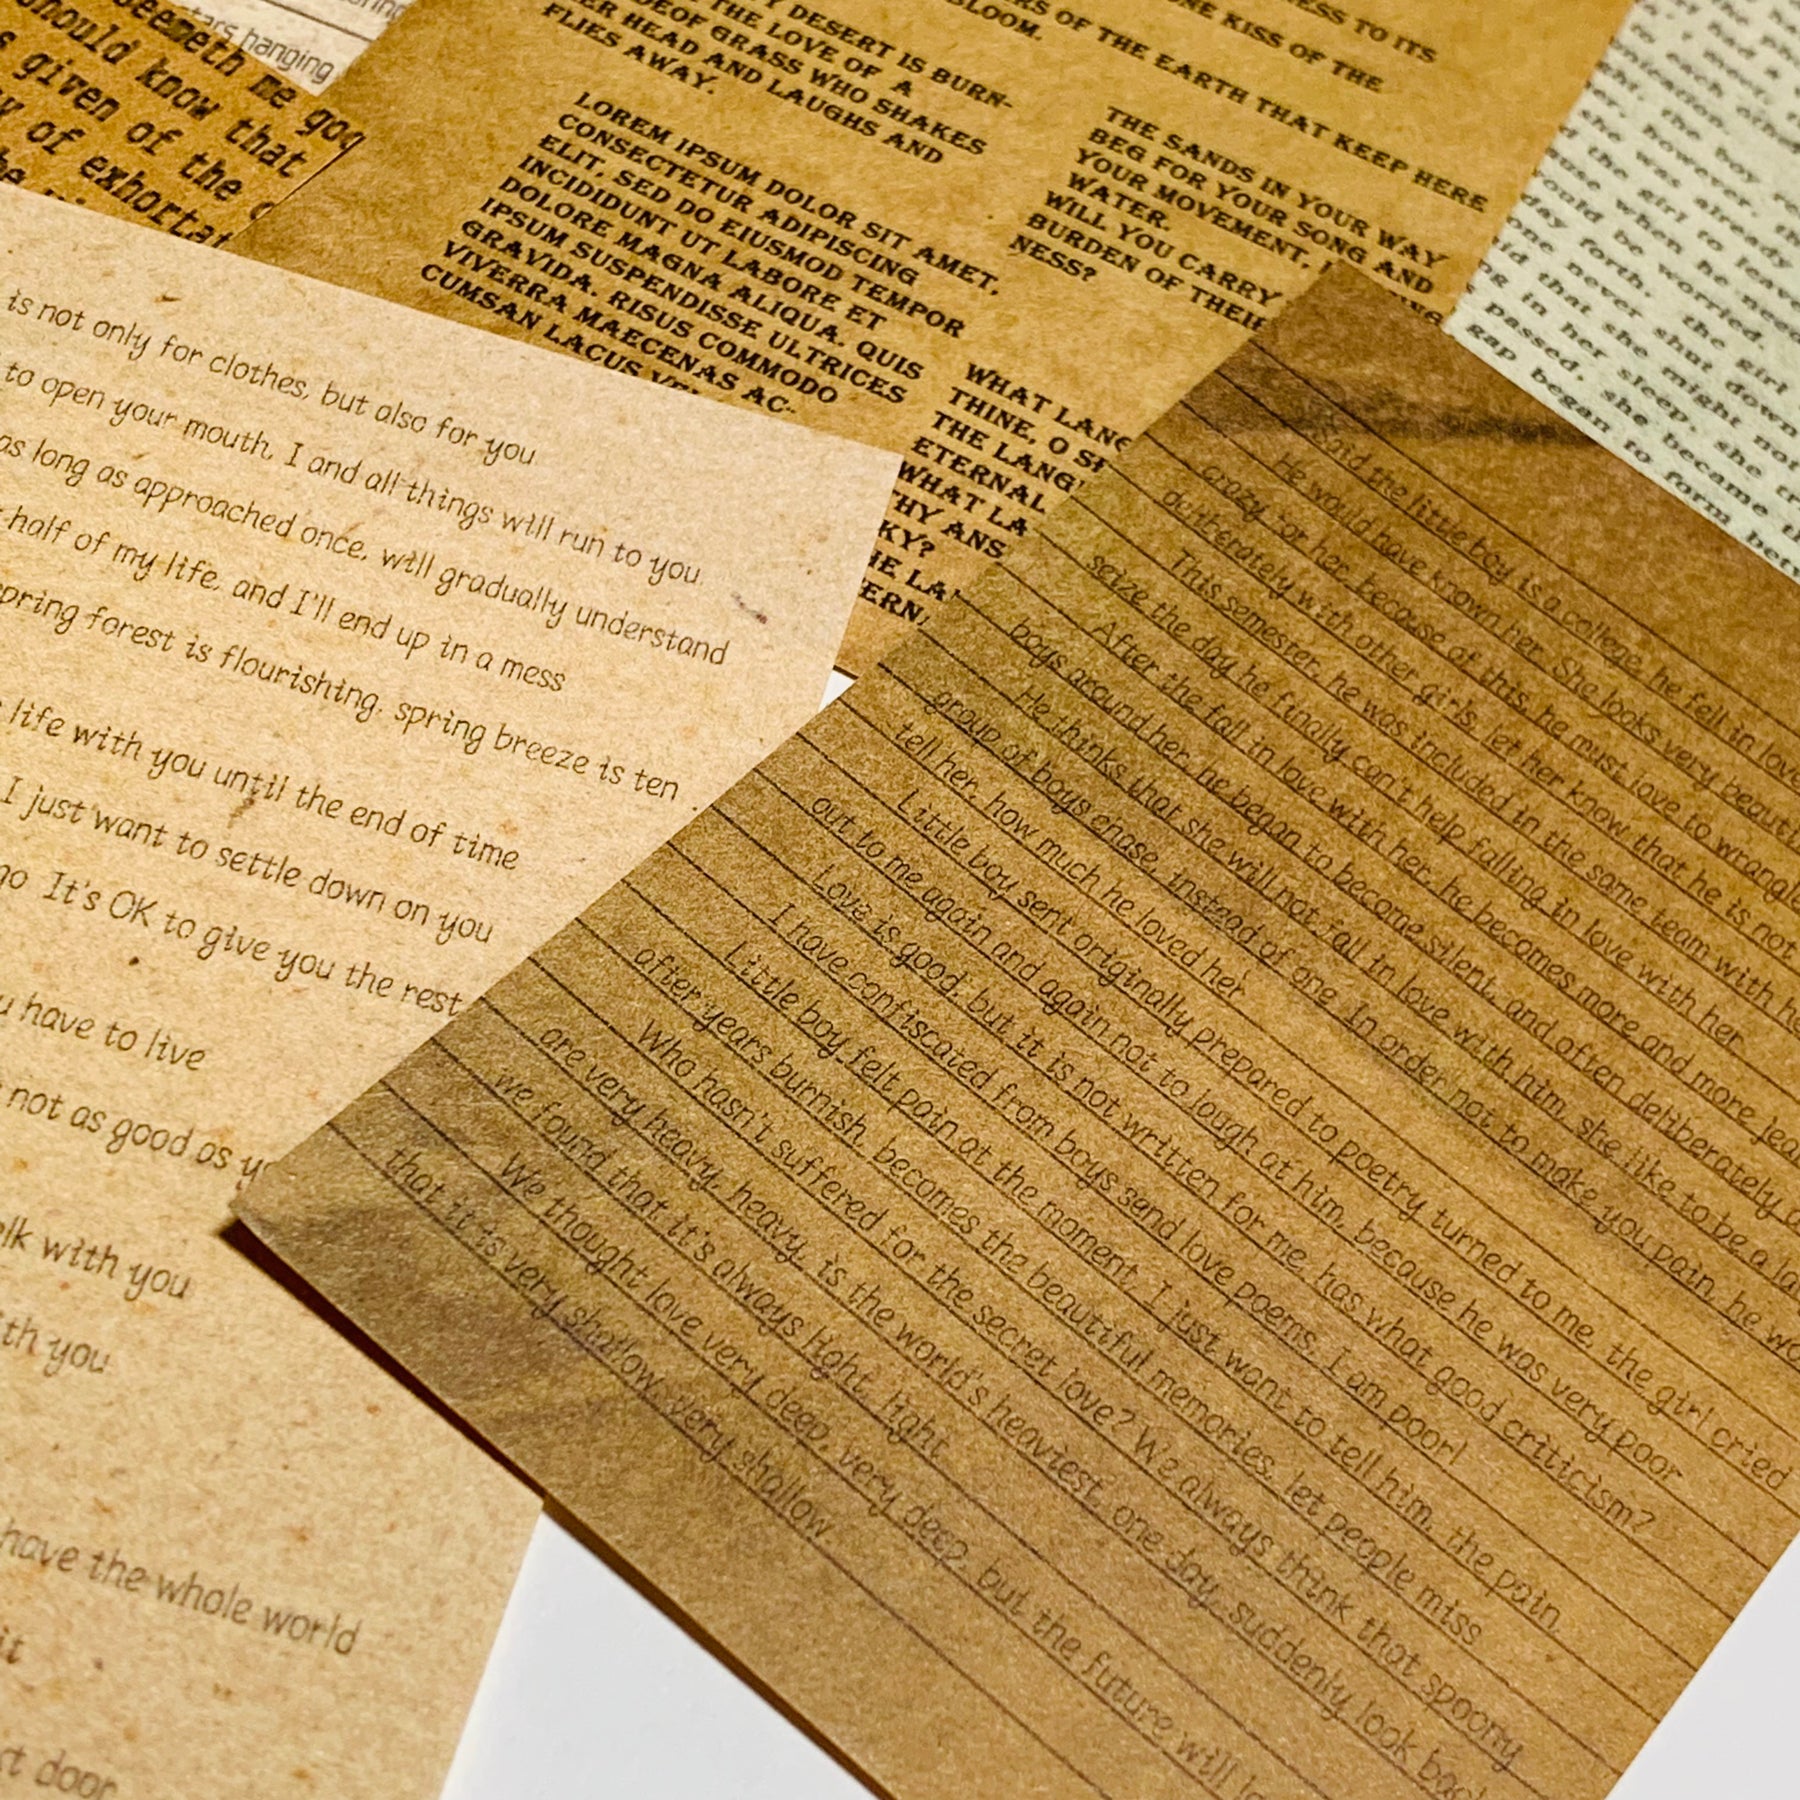 stars hanging
seemeth me goo
should know that
given of the
of exhortat
DESERT IS BURN-
THE LOVE OF A
OF GRASS WHO SHAKES
ER HEAD AND LAUGHS AND
FLIES AWAY.
LOREM IPSUM DOLOR SIT AMET,
CONSECTETUR ADIPISCING
ELIT, SED DO EIUSMOD TEMPOR
INCIDIDUNT UT LABORE ET
DOLORE MAGNA ALIQUA. QUIS
IPSUM SUSPENDISSE ULTRICES
GRAVIDA. RISUS COMMODO
VIVERRA MAECENAS AC-
CUMSAN LACUS VE
ESS TO ITS
ONE KISS OF THE
RS OF THE EARTH THAT KEEP HERE
BLOOM.
THE SANDS IN YOUR WAY
BEG FOR YOUR SONG AND
YOUR MOVEMENT,
WATER.
WILL YOU CARRY
BURDEN OF THEIR
NESS?
WHAT LANG
THINE, O S
THE LANG
ETERNAL
WHAT LA
THY ANS
KY?
HE LA
ERN
is not only for clothes, but also for you
to open your mouth, I and all things will run to you
as long as approached once, will gradually understand
half of my life, and I'll end up in a mess
spring forest is flourishing, spring breeze is ten
life with you until the end of time
I just want to settle down on you
go It's OK to give you the rest
have to live
not as good as
with you
th you
have the whole world
it
door
Said the little boy is a college, he fell in love
He would have known her. She looks very beauti
crazy for her, because of this, he must love to wrangle
with other girls, let her know that he is not
This semester, he was included in the same team with h
seize the day he finally can't help falling in love with her
After the fall in love with her, he becomes more and more jea
boys around her, he began to become silent, and often deliberately
He thinks that she will not fall in love with him, she like to be a la
group of boys enase, instead of one. In order not to make you pain, he wo
tell her, how much he loved her
Little boy sent originally prepared to poetry turned to me, the girl cried
out to me again and again not to laugh at him, because he was very poor
Love is good, but it is not written for me, has what good criticism?
I have confiscated from boys send love poems, I am poor!
Little boy felt pain at the moment, I just want to tell him, the pain,
after years burnish, becomes the beautiful memories, let people miss
Who hasn't suffered for the secret love? We always think that spoony
are very heavy, heavy, is the world's heaviest, one day, suddenly look bac
we found that it's always light, light.
We thought love very deep, very deep, but the future will
that it is very shallow, very shallow.
had a
each other
the boy
she was already
the girl to leave
when he need
ould be worried. the girl
day forth. never shut down
one that she might not
in her sleep, she
passed, she became
gap began to form